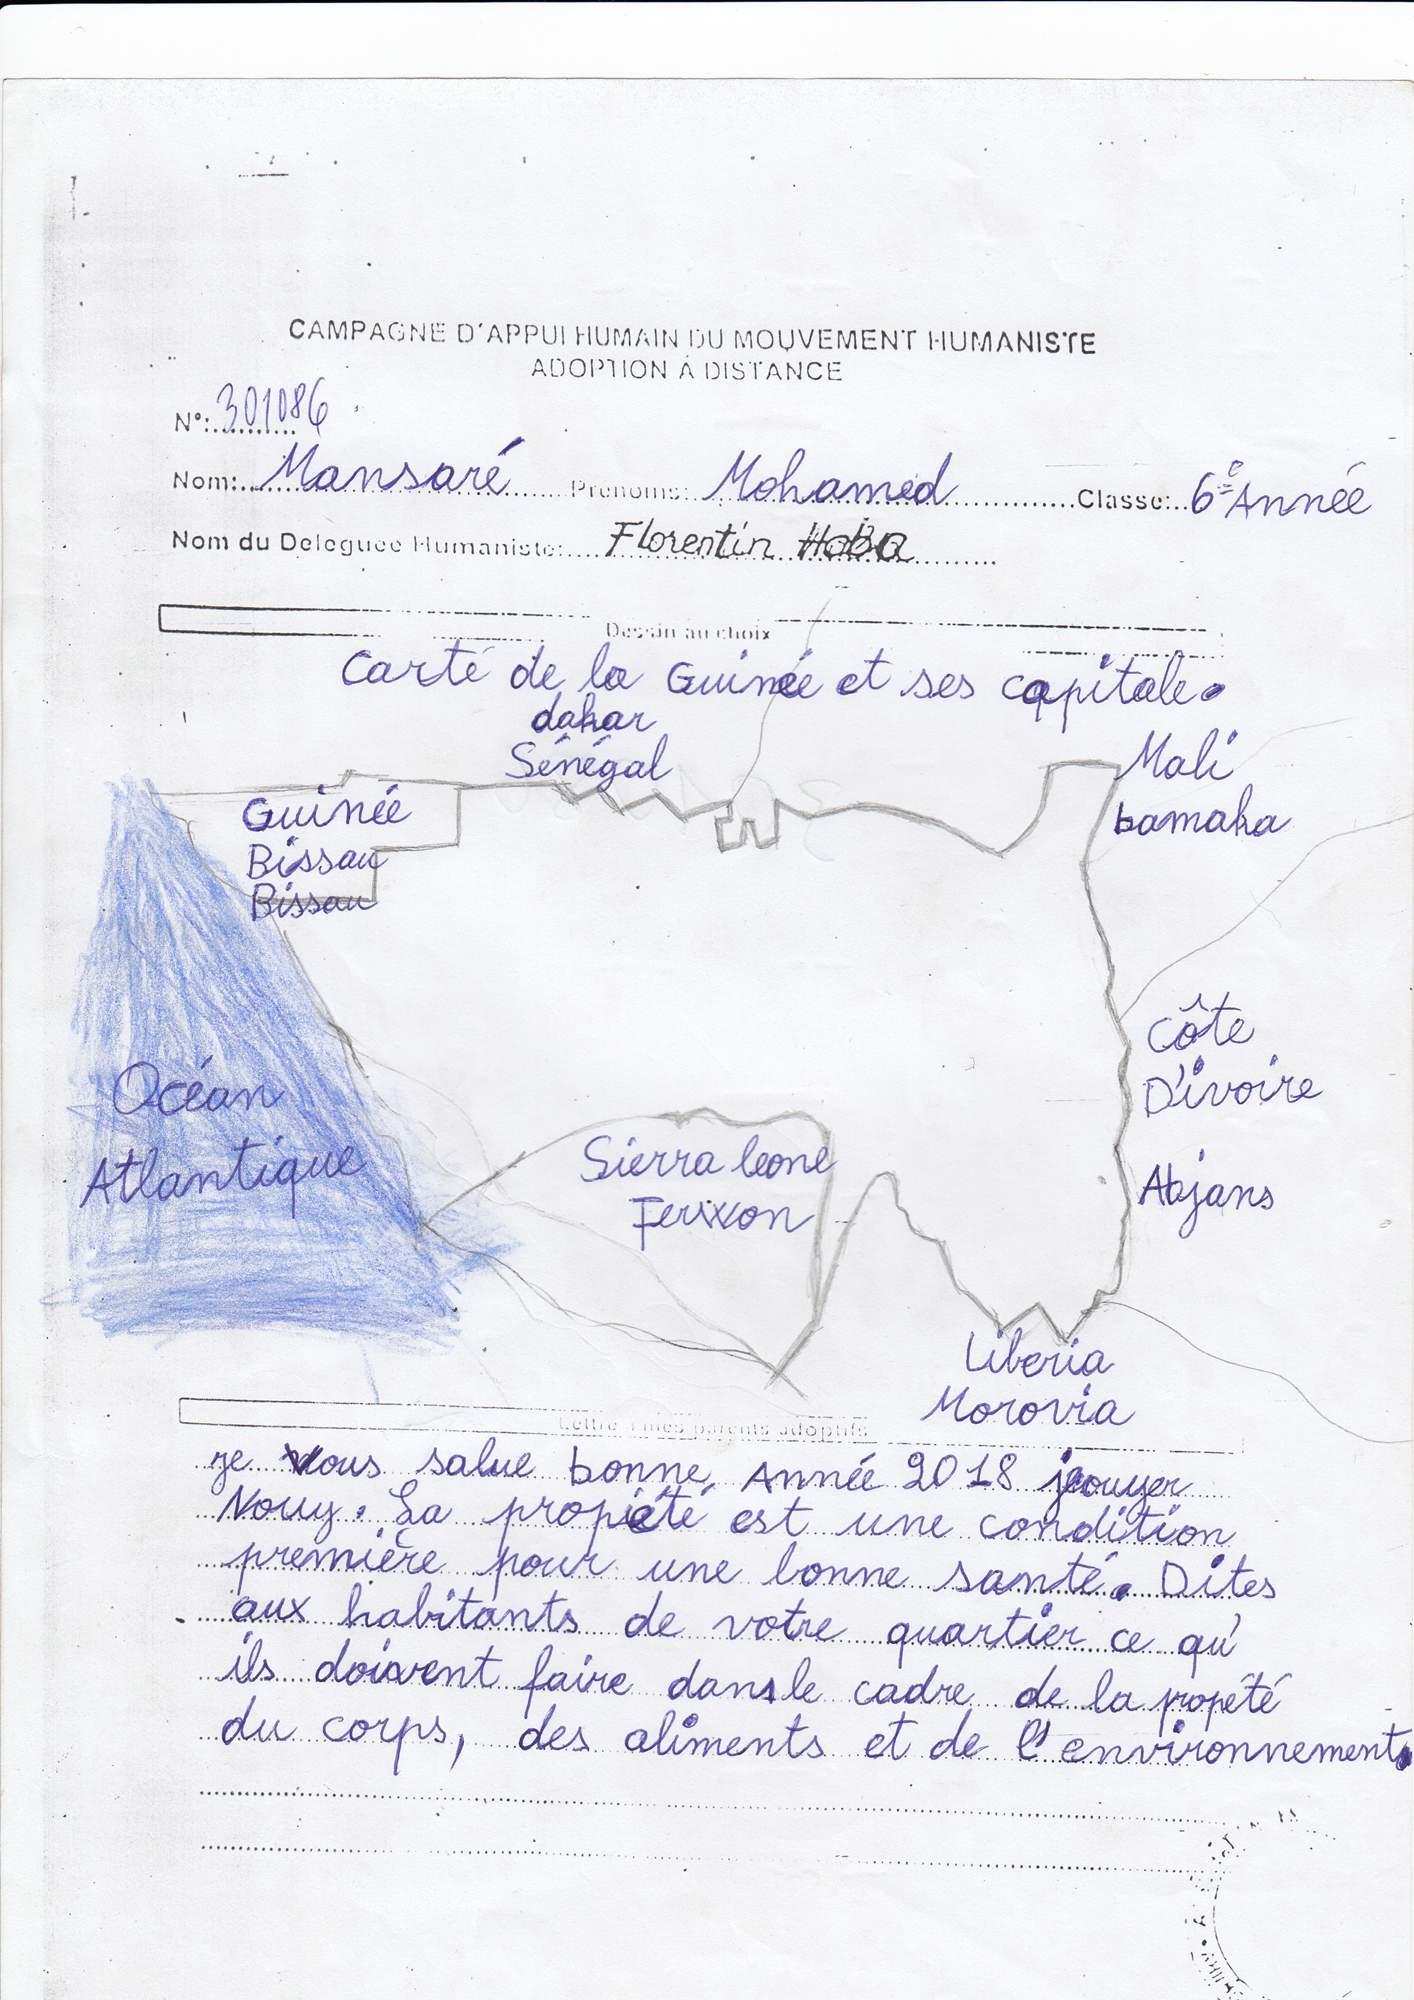 CAMPAGNE D'APPUI HUMAIN DU MOUVEMENT HUMANISTE
ADOPTION A DISTANCE
N°: 301086
Nom: Mansaré Prénoms: Mohamed Classe: 6e Année
Nom du Deleguee Humaniste: Florentin HoBA
Dessin au choix
Carté de la Guinée et ses capitale.
dakar
Sénégal
Mali
bamaka
Guinée
Bissau
Bissau
Côte
D'ivoire
Océan
Atlantique
Sierra leone
Abjans
Liberia
Morovia
Lettre à mes parents adoptifs
je vous salue bonne Année 2018 jeouyer
Nouy. La propiété est une condition
première pour une bonne santé. Dites
aux habitants de votre quartier ce qu'
ils doivent faire dans le cadre de la propété
du corps, des aliments et de l'environnement.